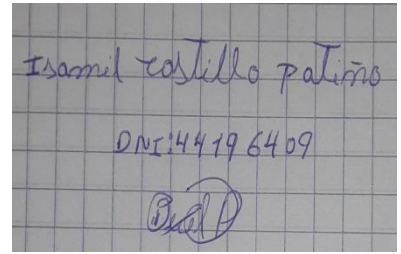 Isamil Castillo Patiño
DNI:44196409